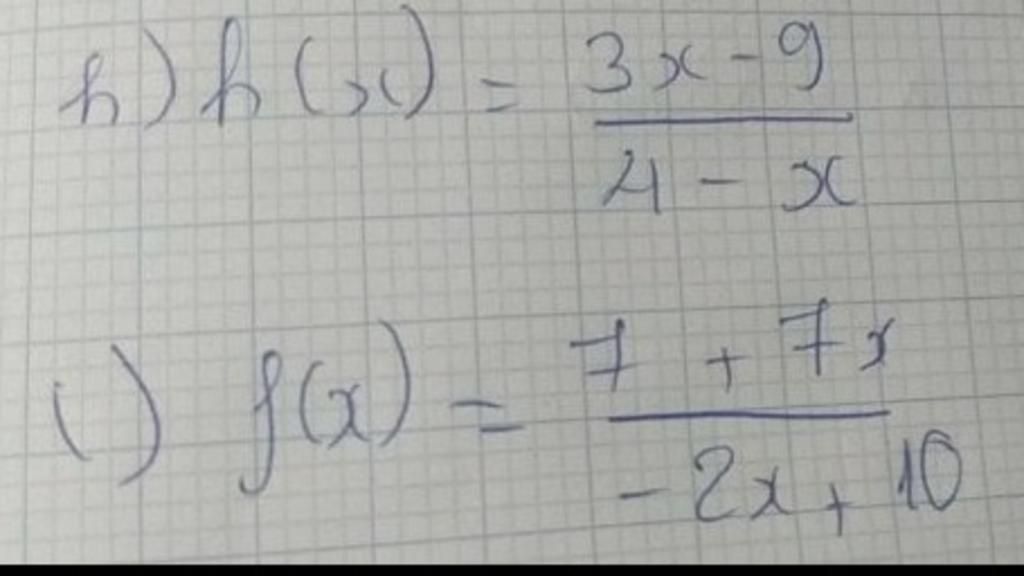 h) h(x) = (3x - 9)/(4 - x)
i) f(x) = (7 + 7x)/(-2x + 10)